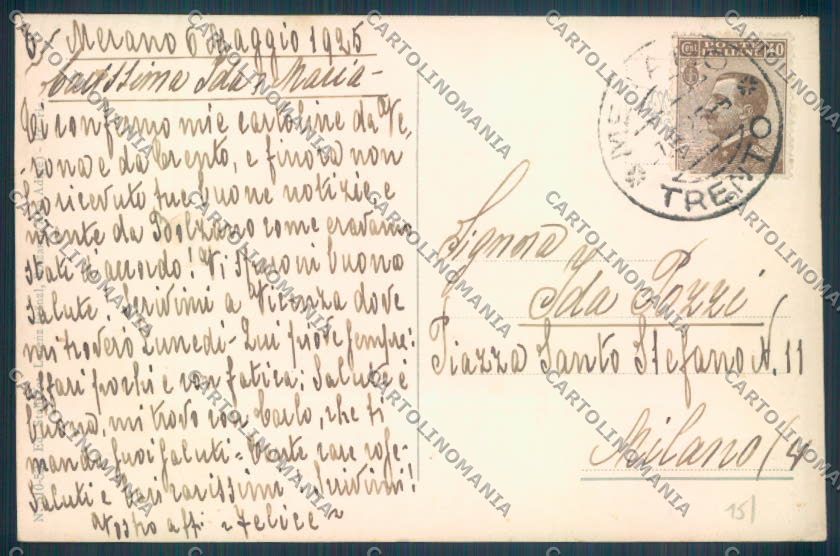 Merano 6 Maggio 1925
Carissima Ida e Maria -
Vi confermo mie cartoline da Ve,
rona e da Trento, e finora non
ho ricevuto tue buone notizie e
niente da Bolzano come eravamo
stati d'accordo! Vi spero in buona
salute. Scrivimi a Vicenza dove
mi troverò Lunedì - Qui piove sempre:
affari pochi e con fatica; Salute è
buona, mi trovo con Carlo, che ti
manda suoi saluti - Tante care cose -
Saluti e baci carissimi. Scrivimi!
Vostro aff. "Felice"
Signora
Ida Pozzi
Piazza Santo Stefano N. 11
Milano (4
15/
POSTE
ITALIANE
Cent 40
MERANO
TRENTO
CARTOLINOMANIA